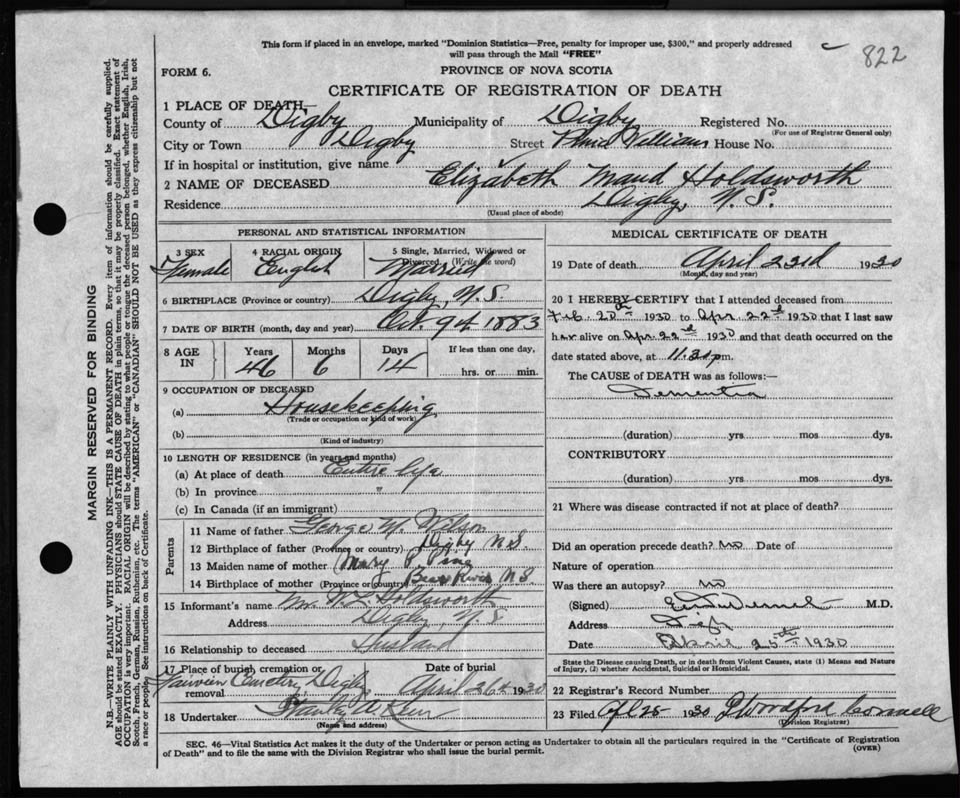 This form if placed in an envelope, marked "Dominion Statistics—Free, penalty for improper use, $300," and properly addressed
will pass through the Mail "FREE"
822
FORM 6.
PROVINCE OF NOVA SCOTIA
CERTIFICATE OF REGISTRATION OF DEATH
1 PLACE OF DEATH—
County of Digby Municipality of Digby Registered No.
(For use of Registrar General only)
City or Town Digby Street Prince William House No.
If in hospital or institution, give name
2 NAME OF DECEASED Elizabeth Maud Holdsworth
Residence Digby, N. S.
(Usual place of abode)
PERSONAL AND STATISTICAL INFORMATION
3 SEX 4 RACIAL ORIGIN 5 Single, Married, Widowed or
Divorced. (Write the word)
Female English Married
6 BIRTHPLACE (Province or country) Digby, N.S.
7 DATE OF BIRTH (month, day and year) Oct. 9th 1883
8 AGE IN Years Months Days If less than one day,
46 6 14 hrs. or min.
9 OCCUPATION OF DECEASED
(a) Housekeeping
(Trade or occupation or kind of work)
(b)
(Kind of industry)
10 LENGTH OF RESIDENCE (in years and months)
(a) At place of death Entire life
(b) In province "
(c) In Canada (if an immigrant)
Parents
11 Name of father George Wilson
12 Birthplace of father (Province or country) Digby N.S.
13 Maiden name of mother Mary
14 Birthplace of mother (Province or country) Bear River N.S.
15 Informant's name Mr. W. L. Holdsworth
Address Digby, N. S.
16 Relationship to deceased Husband
17 Place of burial, cremation or Date of burial
removal Fairview Cemetery Digby April 26th 1930
18 Undertaker
(Name and address)
MEDICAL CERTIFICATE OF DEATH
19 Date of death April 23rd 1930
(Month, day and year)
20 I HEREBY CERTIFY that I attended deceased from
Feb. 20th 1930 to Apr. 22d 1930 that I last saw
her alive on Apr. 22d 1930 and that death occurred on the
date stated above, at 11.30 pm.
The CAUSE of DEATH was as follows:—
Dementia
(duration) yrs mos dys.
CONTRIBUTORY
(duration) yrs. mos dys.
21 Where was disease contracted if not at place of death?
Did an operation precede death? No Date of
Nature of operation
Was there an autopsy? No
(Signed) M.D.
Address Digby
Date April 25th 1930
State the Disease causing Death, or in death from Violent Causes, state (1) Means and Nature
of Injury, (2) whether Accidental, Suicidal or Homicidal.
22 Registrar's Record Number
23 Filed Apl 25 1930 Woodford Connell
(Division Registrar)
SEC. 46—Vital Statistics Act makes it the duty of the Undertaker or person acting as Undertaker to obtain all the particulars required in the "Certificate of Registration
of Death" and to file the same with the Division Registrar who shall issue the burial permit.
(OVER)
MARGIN RESERVED FOR BINDING
N.B.—WRITE PLAINLY WITH UNFADING INK—THIS IS A PERMANENT RECORD. Every item of information should be carefully supplied.
AGE should be stated EXACTLY. PHYSICIANS should STATE CAUSE OF DEATH in plain terms, so that it may be properly classified. Exact statement of
OCCUPATION is very important. RACIAL ORIGIN will be described by stating to what people or tongue the deceased person belonged, whether English, Irish,
Scotch, French, German, Russian, Ruthenian, etc. The terms "AMERICAN" or "CANADIAN" SHOULD NOT BE USED as they express citizenship but not
a race or people. See instructions on back of Certificate.